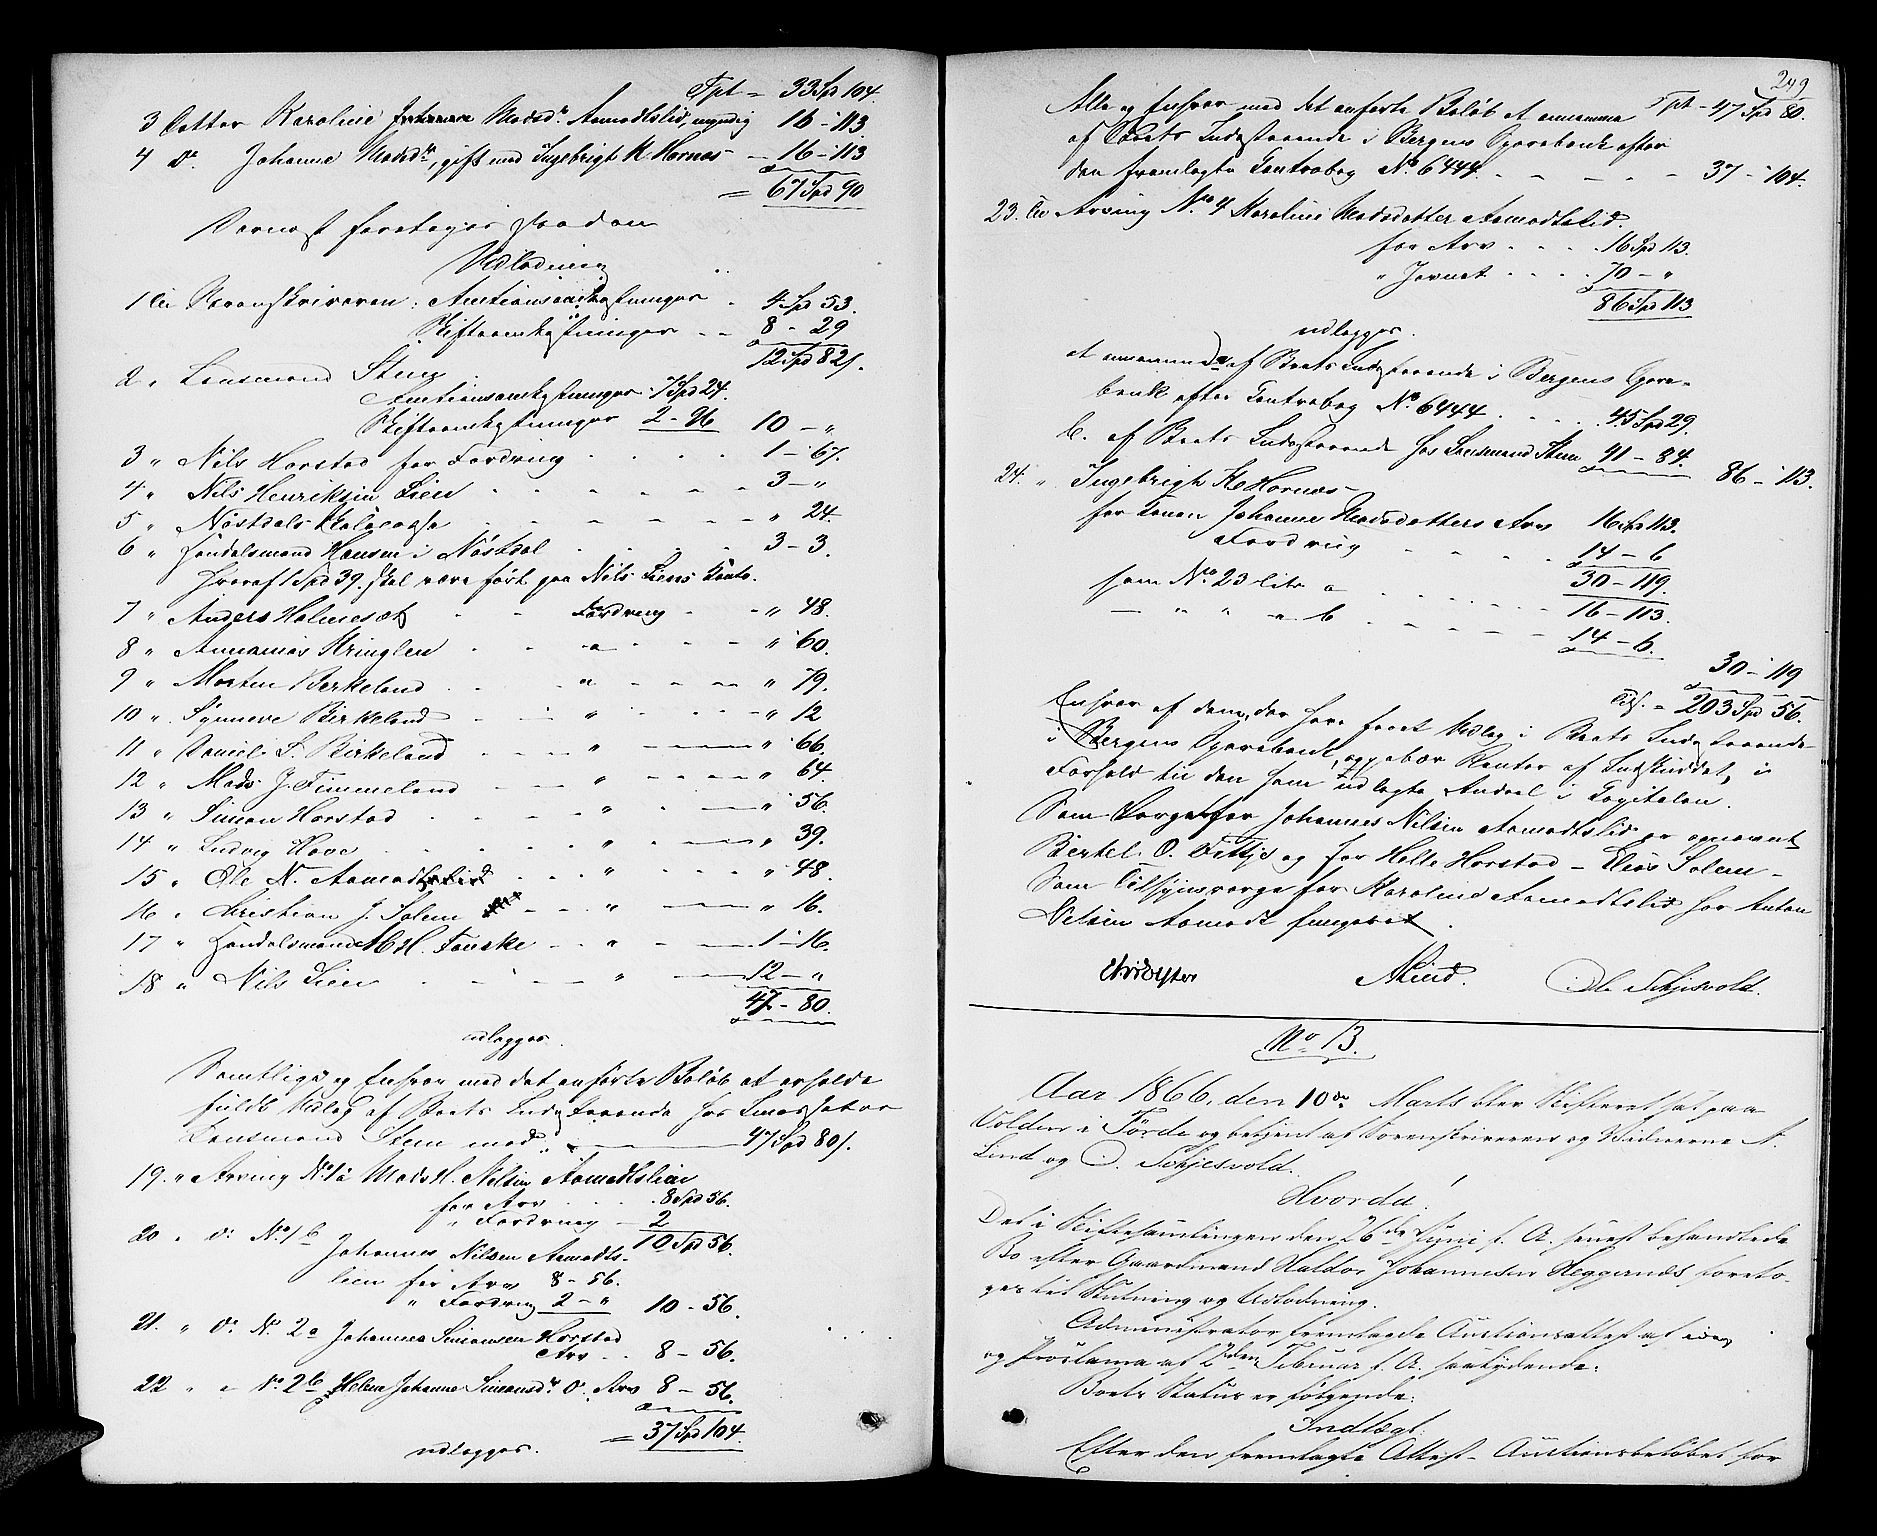 Tpt = 33 Spd 104.
3 Datter Karoline Johanne Madsdr. Aamodtslid, myndig 16 - 113
4 Do. Johanne Madsdr., gift med Ingebrigt K. Hornæs - 16 - 113
= 67 Spd 90
Dernæst foretoges saadan
Udlodning
1 Til Sorenskriveren: Auctionsomkostninger . 4 Spd 53.
Skifteomkostninger - - 8 - 29
12 Spd 82/.
2 " Lensmand Stem
Auctionsomkostninger 7 Spd 24.
Skifteomkostninger 2 - 96 10 - "
3 " Nils Horstad for Fordring . . . . 1 - 67.
4 " Nils Henriksen Lien - - - - - 3 - "
5 " Nøstdals Skolecasse - - - - - " 24.
6 " Handelsmand Hansen i Nøstdal . . . . 3 - 3.
hvoraf 1 Spd 39. skal være ført paa Nils Liens Conto.
7 " Anders Holmesæt . - Fordring - - " 48.
8 " Annanias Kringlen - - " - - " 60.
9 " Morten Birkeland . - " - - - " 79.
10 " Synneve Birkeland - - " - - - " 12
11 " Daniel S. Birkeland - - " - - " 66.
12 " Mads J. Timmeland - - " - - " 64.
13 " Simon Horstad - - " - - " 56.
14 " Ludvig Hove - - " - - " 39.
15 " Ole N. Aamodtslid - - " - - " 48.
16 " Christian J. Solem - - " - - " 16.
17 " Handelsmand M. H. Fanske - - " - - 1 - 16.
18 " Nils Lien . - - - " - - 12 - "
47 - 80.
udlægges.
Samtlige og Enhver med det anførte Beløb at erholde
fuldt Udlæg af Boets Indestaaende hos Incassator
Lensmand Stem med 47 Spd 80/.
19. " Arving No. 1 a Mads H. Nilsen Aamodtslien
for Arv . . . . 8 Spd 56.
" Fordring - 2
10 Spd 56.
20 " Do. No. 1 b Johannes Nilsen Aamodts-
lien for Arv 8 - 56.
" Fordring 2 - " 10 - 56.
21. " Do. No. 2 a Johannes Simonsen Horstad
Arv . . 8 - 56.
22 " " No. 2 b Helene Johanne Simonsdr. Do. Arv 8 - 56.
= 37 Spd 104.
udlægges.
249
Tpt - 47 Spd 80.
Alle og Enhver med det anførte Beløb at annamme
af Boets Indestaaende i Bergens Sparebank efter
den fremlagte Contrabog No. 6444. - - - - 37 - 104.
23. Til Arving No. 4 Karoline Madsdatter Aamodtslid.
for Arv . . . . 16 Spd 113.
" Jernet . . . . 70 - "
86 Spd 113
udlægges.
at annamme a af Boets Indestaaende i Bergens Spare-
bank efter Contrabog No. 6444 . . . . 45 Spd 29.
b. af Boets Indestaaende hos Lensmand Stem 41 - 84. 86 - 113.
24. " Ingebrigt K. Hornæs
for Konen Johanne Madsdatters Arv 16 Spd 113.
Fordring . . . . 14 - 6
30 - 119.
som No. 23 litr a . . . . 16 - 113.
- " " " b . - - - 14 - 6.
30 - 119
Tils. = 203 Spd 56.
Enhver af dem, der have faaet Udlæg i Boets Indestaaende
i Bergens Sparebank, oppebær Renter af Indskuddet, i
Forhold til den ham udlagte Andeel i Capitalen.
Som Værge for Johannes Nilsen Aamodtslid er opnævnt
Berkel O. Fittje og for Helle Horstad - Elias Solem -
Som Tilsynsværge for Karoline Aamodtslid har Anton
Nilsen Aamodt fungeret.
A Lind. Ole Schjesvold.
No. 13.
Aar 1866. den 10de Marts blev Skifteret sat paa
Volden i Førde og betjent af Sorenskriveren og Vidnerne A.
Lind og O. Schjesvold.
Hvorda!
Det i Skiftesamlingen den 26de Juni f. A. senest behandlede
Bo efter Gaardmand Haldor Johannesen Heggenæs foreto-
ges til Slutning og Udlodning.
Administrator fremlagde Auctionsattest af idag
og Proclama af 2den Februar f. A. saalydende:
Boets Status er følgende:
Indtægt:
Efter den fremlagte Attest - Auctionsbeløbet for